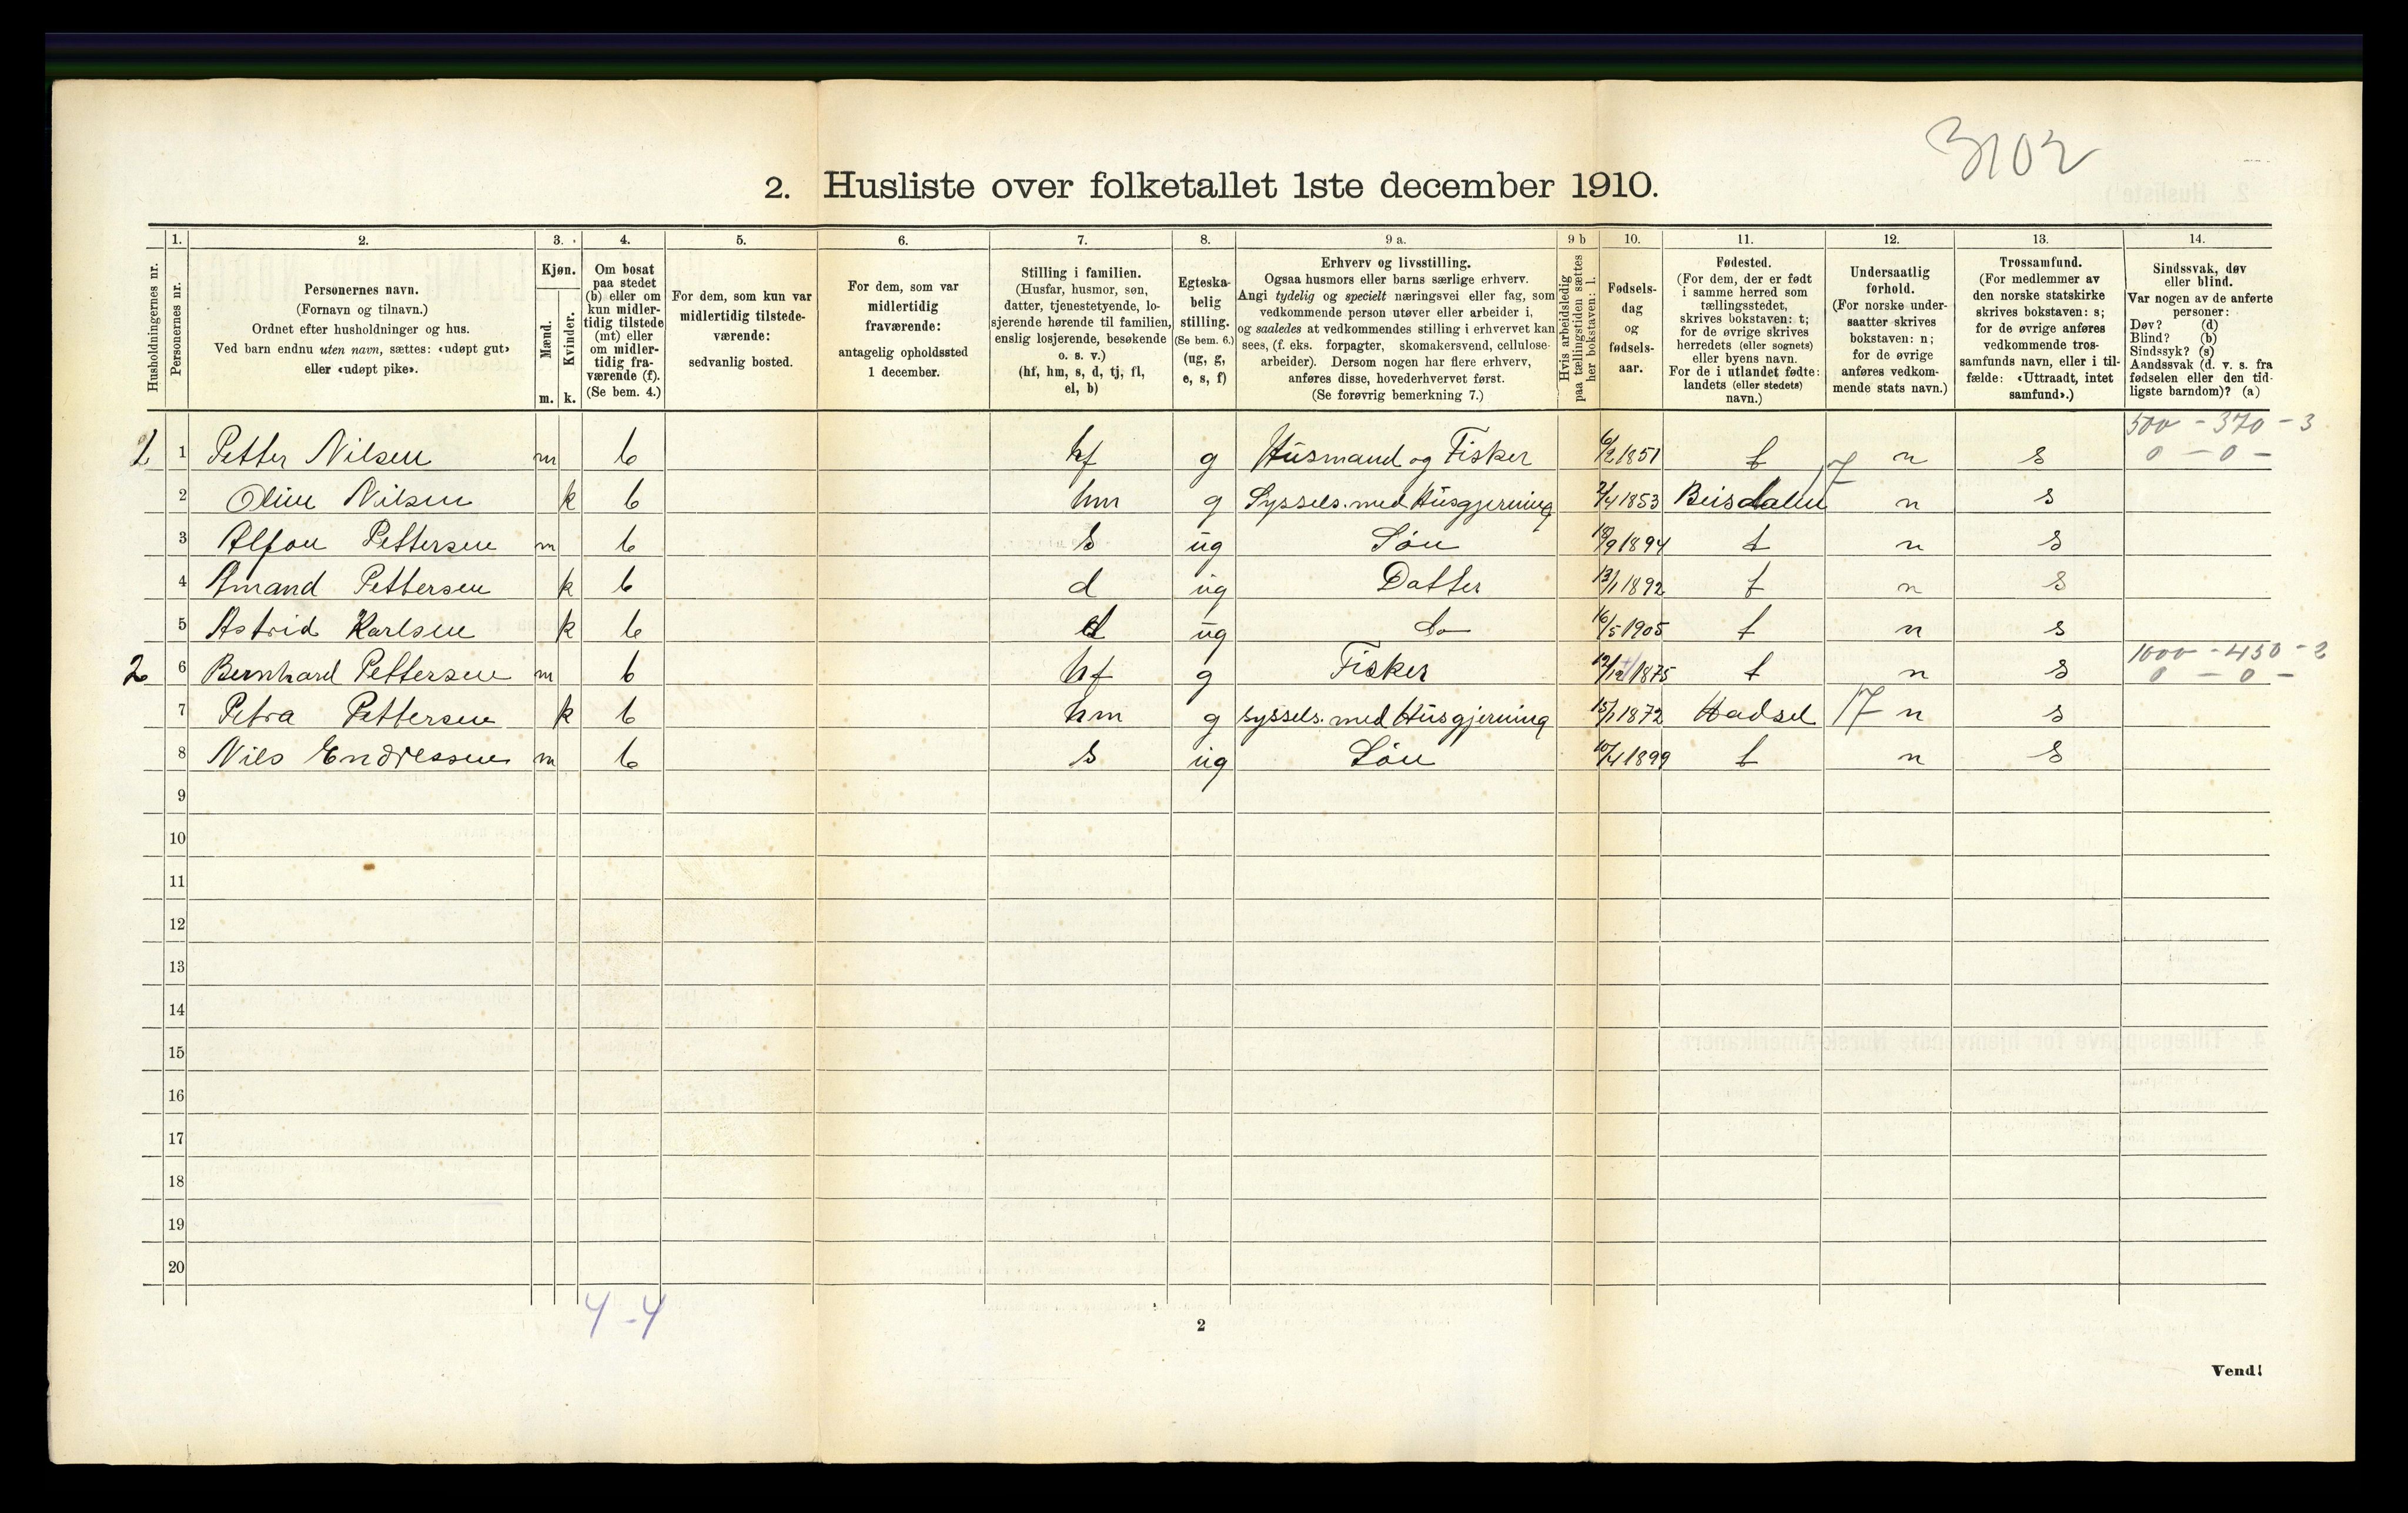 3102
2. Husliste over folketallet 1ste december 1910.
Husholdningernes nr.
1. Personernes nr.
2. Personernes navn.
(Fornavn og tilnavn.)
Ordnet efter husholdninger og hus.
Ved barn endnu uten navn, sættes: «udøpt gut»
eller «udøpt pike».
3. Kjøn.
Mænd. m.
Kvinder. k.
4. Om bosat
paa stedet
(b) eller om
kun midler-
tidig tilstede
(mt) eller
om midler-
tidig fra-
værende (f).
(Se bem. 4.)
5. For dem, som kun var
midlertidig tilstede-
værende:
sedvanlig bosted.
6. For dem, som var
midlertidig
fraværende:
antagelig opholdssted
1 december.
7. Stilling i familien.
(Husfar, husmor, søn,
datter, tjenestetyende, lo-
sjerende hørende til familien,
enslig losjerende, besøkende
o. s. v.)
(hf, hm, s, d, tj, fl,
el, b)
8. Egteska-
belig
stilling.
(Se bem. 6.)
(ug, g,
e, s, f)
9 a. Erhverv og livsstilling.
Ogsaa husmors eller barns særlige erhverv.
Angi tydelig og specielt næringsvei eller fag, som
vedkommende person utøver eller arbeider i,
og saaledes at vedkommendes stilling i erhvervet kan
sees, (f. eks. forpagter, skomakersvend, cellulose-
arbeider). Dersom nogen har flere erhverv,
anføres disse, hovederhvervet først.
(Se forøvrig bemerkning 7.)
9 b Hvis arbeidsledig
paa tællingstiden sættes
her bokstaven: l.
10. Fødsels-
dag
og
fødsels-
aar.
11. Fødested.
(For dem, der er født
i samme herred som
tællingsstedet,
skrives bokstaven: t;
for de øvrige skrives
herredets (eller sognets)
eller byens navn.
For de i utlandet fødte:
landets (eller stedets)
navn.)
12. Undersaatlig
forhold.
(For norske under-
saatter skrives
bokstaven: n;
for de øvrige
anføres vedkom-
mende stats navn.)
13. Trossamfund.
(For medlemmer av
den norske statskirke
skrives bokstaven: s;
for de øvrige anføres
vedkommende tros-
samfunds navn, eller i til-
fælde: «Uttraadt, intet
samfund».)
14. Sindssvak, døv
eller blind.
Var nogen av de anførte
personer:
Døv? (d)
Blind? (b)
Sindssyk? (s)
Aandssvak (d. v. s. fra
fødselen eller den tid-
ligste barndom)? (a)
500 - 370 - 3
1 1 Petter Nilsen m b hf g Husmand og Fisker 6/2 1851 t n s 0 - 0 -
2 Oline Nilsen k b hm g Syssels. med Husgjerning 2/4 1853 Beisdalen 17 n s
3 Alfon Pettersen m b s ug Søn 18/9 1894 t n s
4 Amand Pettersen k b d ug Datter 13/1 1892 t n s
5 Astrid Karlsen k b d ug do 16/5 1905 t n s
1000 - 450 - 2
2 6 Bernhard Pettersen m b hf g Fisker 12/12 1875 t n s 0 - 0 -
7 Petra Pettersen k b hm g syssels. med Husgjerning 15/1 1872 Hadsel 17 n s
8 Nils Endressen m b s ug Søn 10/4 1899 t n s
9
10
11
12
13
14
15
16
17
18
19
20
4 - 4
2
Vend!